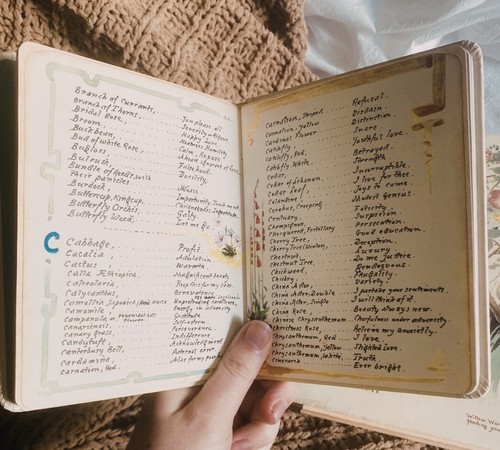 Branch of Currants, You please all
Branch of Thorns, Severity-Rigor
Bridal Rose, Happy Love.
Broom, Humility
Buckbean, Calm, Repose
Bud of White Rose, Heart ignorant of love.
Bugloss, Falsehood.
Bulrush, Docility.
Bundle of Reeds, with
their panicles Music
Burdock, Importunity, Touch me not
Buttercup, Kingcup,
Butterfly Orchis, Gaiety
Butterfly Weed, Let me go.
C
Cabbage, Profit.
Cacalia, Adulation.
Cactus, Warmth
Calla Æthiopica, Magnificent beauty.
Calycanthus, Benevolence
Camellia Japonica,
Camomile, Energy in adversity
Campanula
Canariensis,
Canary Grass, Perseverance.
Candytuft, Indifference.
Canterbury Bell, Acknowledgment
Cardamine, Paternal error.
Carnation, Red. Alas! for my poor heart
Carnation, Striped Refusal.
Carnation, Yellow Disdain.
Cardinal Flower Distinction.
Catchfly Snare
Catchfly, Red, Youthful love.
Catchfly, White Betrayed.
Cedar, Strength
Cedar of Lebanon Incorruptible.
Cedar Leaf, I live for thee.
Celandine Joys to come.
Cereus, Creeping Modest Genius.
Centaury, Felicity.
Champignon, Suspicion.
Chequered, Fritillary Persecution.
Cherry Tree, Good education.
Cherry Tree, Deception.
Chestnut, Luxury
Chestnut Tree, Do me justice
Chickweed, Rendezvous
Chicory, Frugality
China Aster Variety.
China Aster, Double I partake your sentiments.
China Aster, Single I will think of it.
China Rose Beauty always new.
Chinese Chrysanthemum Cheerfulness under adversity
Christmas Rose, Relieve my anxiety.
Chrysanthemum, Red I love
Chrysanthemum, Yellow Slighted Love.
Chrysanthemum, White Truth
Cineraria Ever bright.